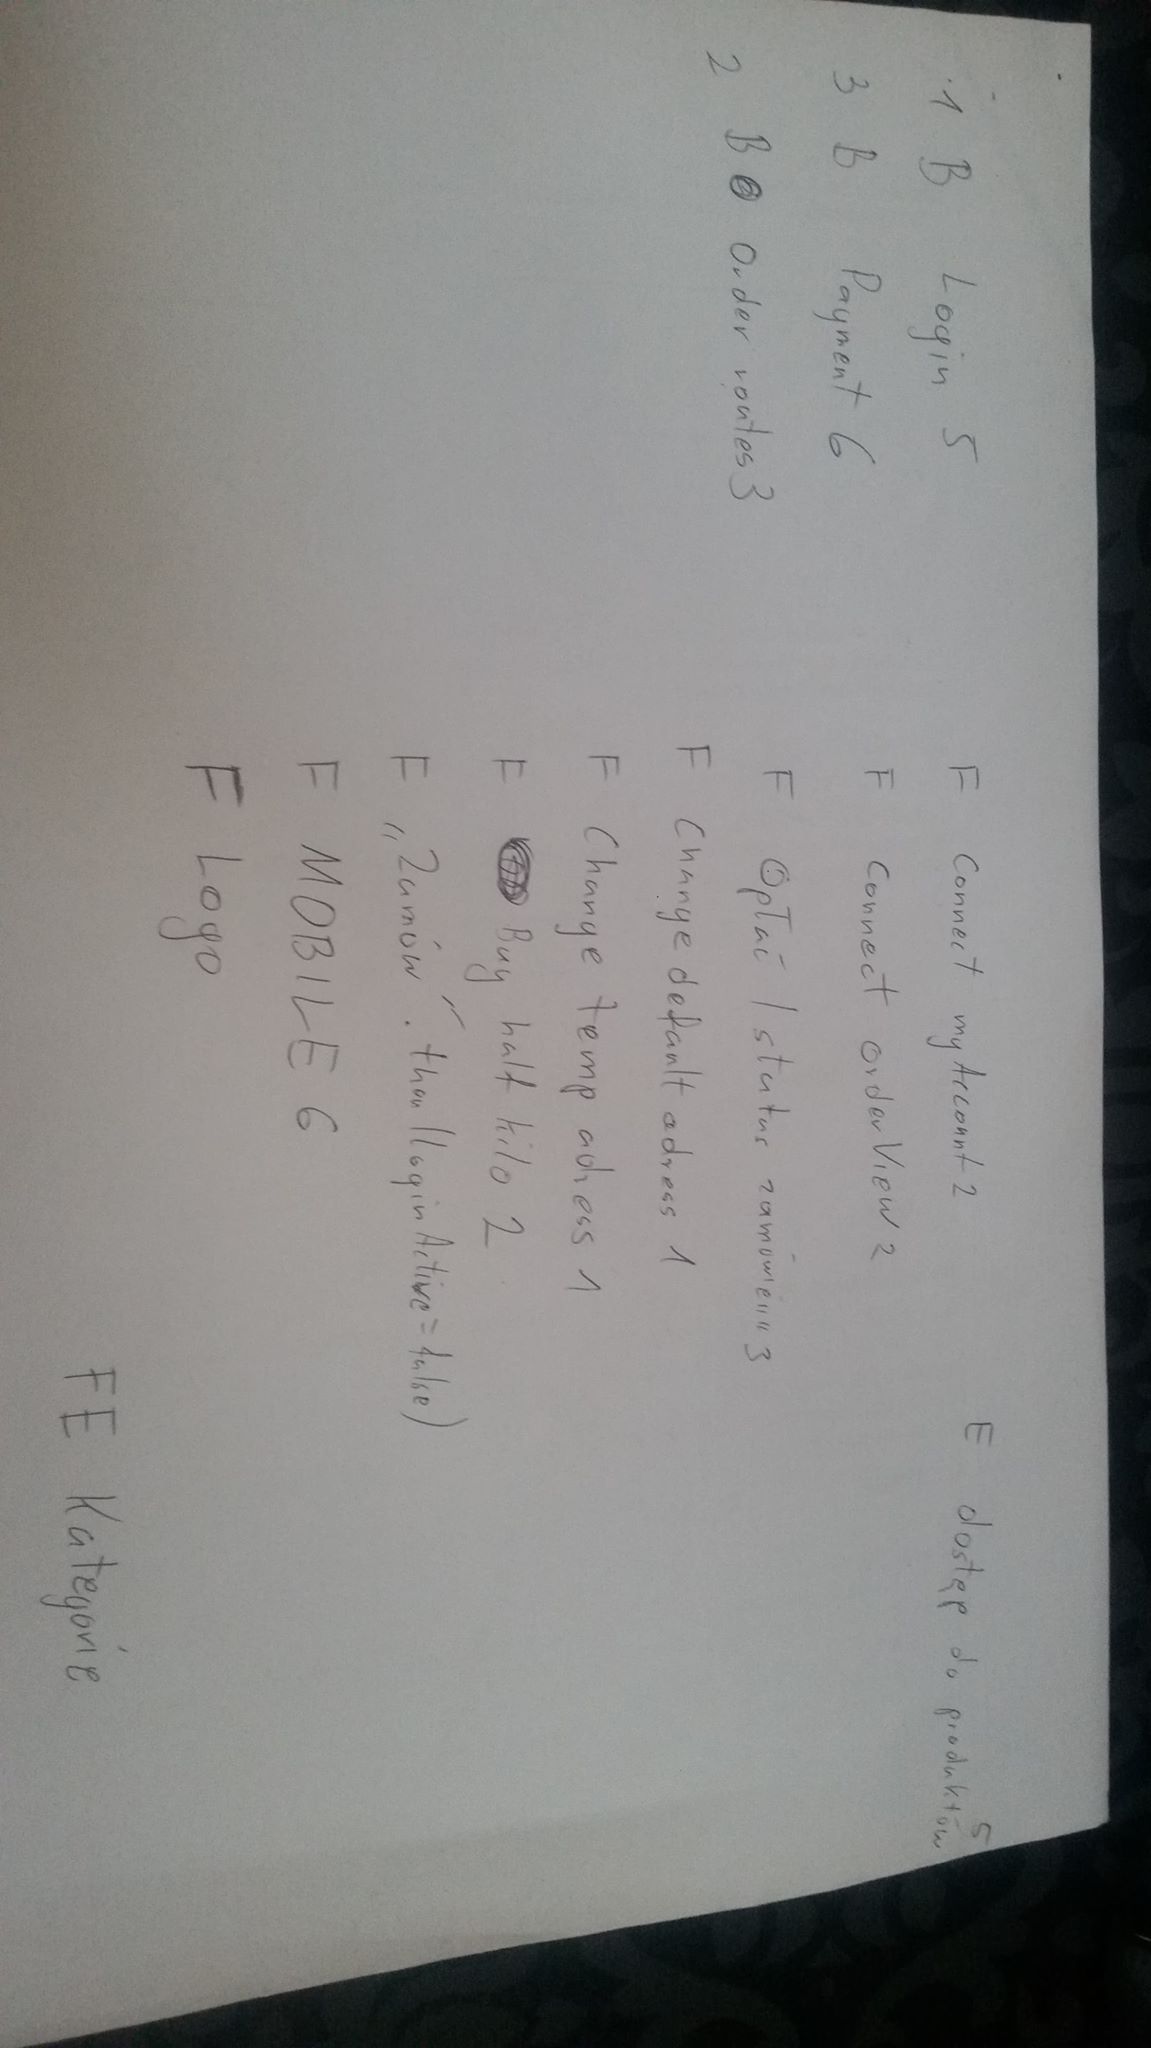 1 B Login 5
3 B Payment 6
2 B Order routes 3
F Connect myAccount 2
F Connect orderView 2
F Opłać / status zamówień 3
F Change default adress 1
F Change temp adress 1
F Buy half kilo 2
F „Zamów”. then (loginActive = false)
F MOBILE 6
F Logo
E dostęp do produktów 5
FE Kategorie